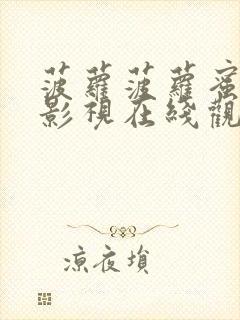 菠蘿菠蘿蜜
影視在綫觀
涼夜塤